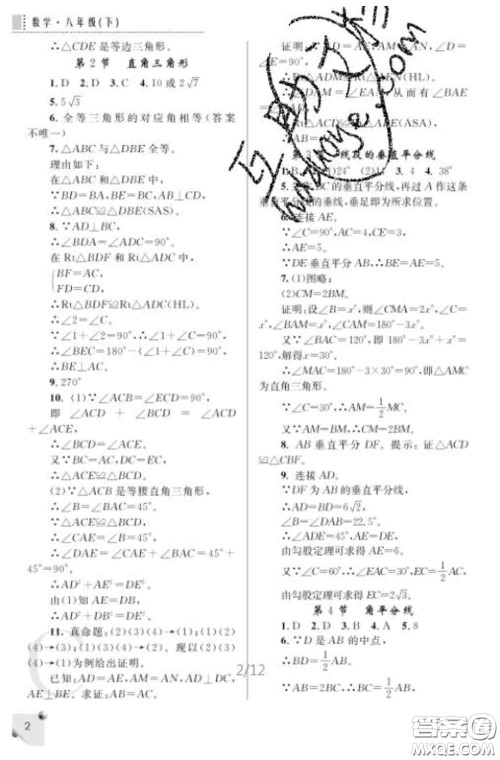 数学·八年级(下)
∴△CDE是等边三角形。
第2节 直角三角形
1. D 2. D 3. C 4. 10或2√7
5. 5√3
6. 全等三角形的对应角相等(答案
不唯一)
7. △ABC与△DBE全等。
理由如下:
在△ABC和△DBE中,
∵BD=BA,BE=BC,AC=DE,
∴△ABC≌△DBE(SAS).
8. ∵AD⊥BC,
∴∠BDA=∠ADC=90°.
在Rt△BDF和Rt△ADC中,
BF=AC,
FD=CD,
∴Rt△BDF≌Rt△ADC(HL).
∴∠2=∠C.
∵∠1+∠2=90°,∴∠1+∠C=90°.
∴∠BEC=180°-(∠1+∠C)=90°.
∴BE⊥AC.
9. 270°
10. (1)∵∠ACB=∠ECD=90°,
即∠ACD+∠BCD=∠ACD
+∠ACE,
∴∠BCD=∠ACE.
又∵BC=AC,DC=EC,
∴△ACE≌△BCD.
(2)∵△ACB是等腰直角三角形,
∴∠B=∠BAC=45°.
∵△ACE≌△BCD,
∴∠CAE=∠B=45°.
∴∠DAE=∠CAE+∠BAC=45°+
45°=90°.
∴AD²+AE²=DE².
由(1)知AE=DB,
∴AD²+DB²=DE².
11. 真命题:(2)(3)(4)→(1);(1)(2)
(4)→(3);(1)(3)(4)→(2). 现以(2)(3)
(4)→(1)为例给出证明。
已知:AE=AD,AB=DC,
AE⊥BE. 求证:AC=DB.
∠E=90°,
(HL).
从而有∠BAE
(ASA),
线段的垂直平分线
3. 4 4. 38°
的垂直平分线,再过A作这条
垂直平分线的垂线,垂足即为所求位置。
连接AE.
∵∠C=90°,AC=4,CE=3,
∴AE=5.
∵DE垂直平分AB,∴BE=AE=5.
7. (1)图略;
(2)CM=2BM.
证明:设∠B=x°,则∠CMA=2x°,
又∵AM=CM,∠CAM=180°-3x°.
又∵∠BAC=120°,即180°-3x°+x°=
120°,解得x=30°.
∴∠MAC=180°-3×30°=90°,即△AMC
为直角三角形。
又∵∠C=30°,∴AM=1/2MC.
又∵AM=BM,∴CM=2BM.
8. AB垂直平分DF. 提示:证△ACD
≌△CBF.
9. 连接AD.
∵DF为AB的垂直平分线,
∴AD=BD=6√2,
∴∠B=∠DAB=22.5°.
∴∠ADE=45°,AE=DE.
由勾股定理可求得AE=6.
又∵∠C=60°,∴∠EAC=30°,EC=1/2AC.
由勾股定理可求得EC=2√3.
第4节 角平分线
1. B 2. B 3. D 4. A 5. 8
6. ∵D是AB的中点,
∴BD=1/2AB.
又∵AB=2BC,∴BC=1/2AB.
2/12
2
答案圈
MXQE.COM